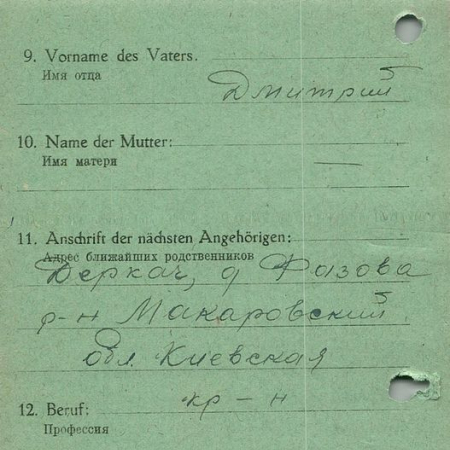 9. Vorname des Vaters.
Имя отца
Дмитрий
10. Name der Mutter:
Имя матери
—
11. Anschrift der nächsten Angehörigen:
Адрес ближайших родственников
Деркач, д Фазова
р-н Макаровский
обл. Киевская
12. Beruf: кр-н
Профессия